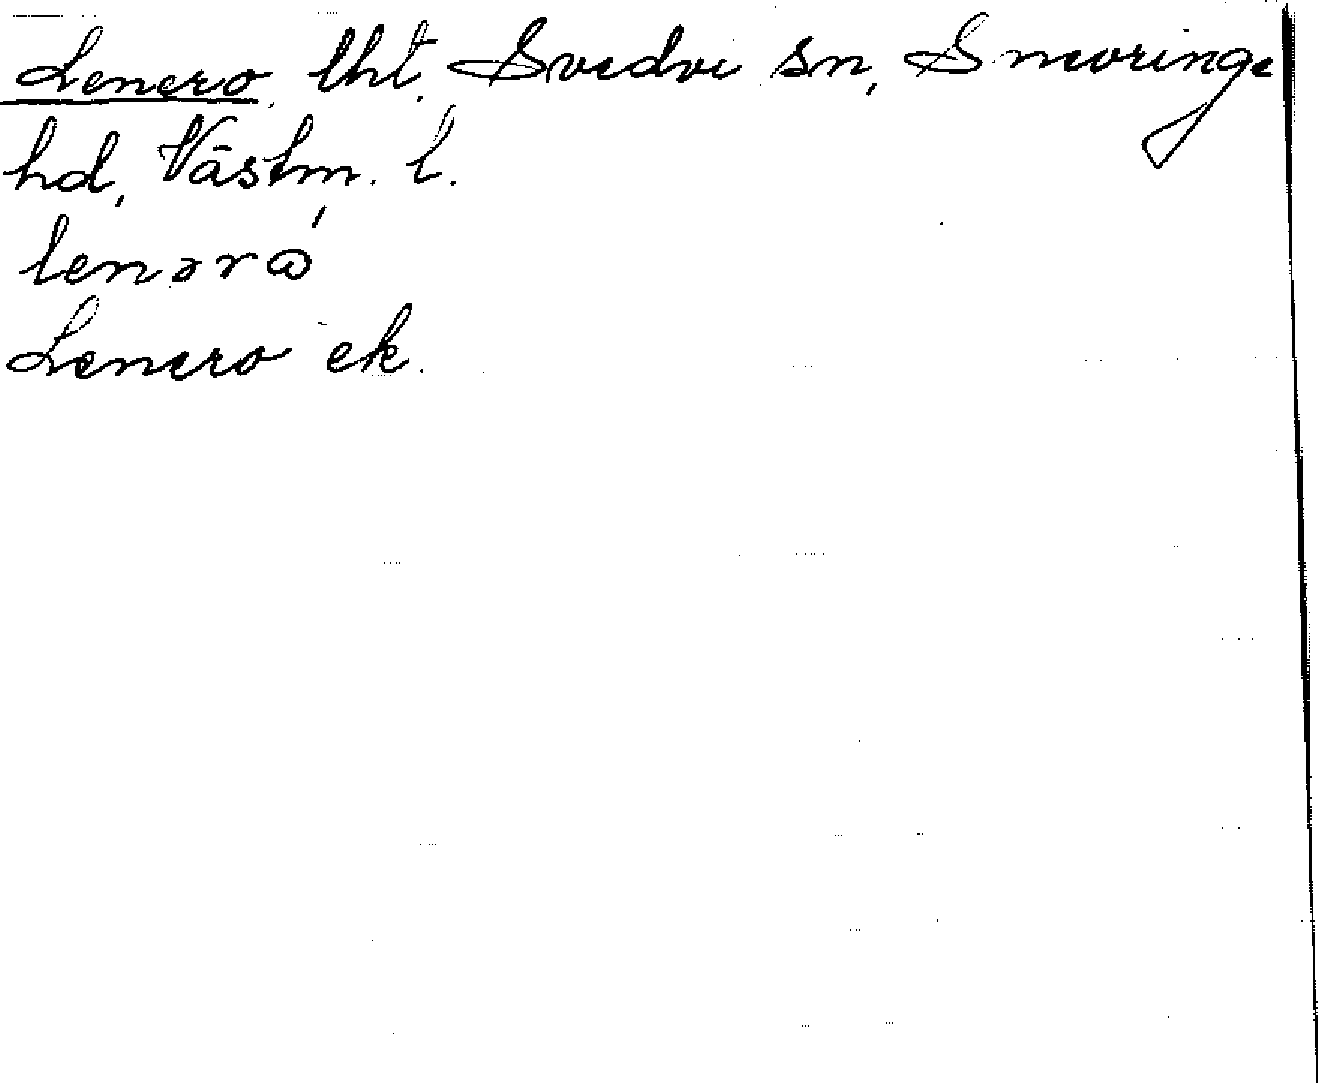 Lenero, lht, Svedvi sn, Snevringe
hd, Västm. l.
lenərὼ
Lenero ek.